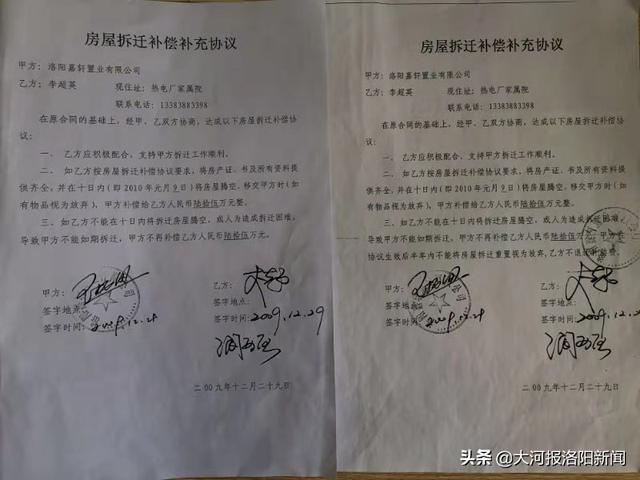 房屋拆迁补偿补充协议
甲方：洛阳嘉轩置业有限公司
乙方：李超英 现住址：热电厂家属院
联系电话：13383883398
在原合同的基础上，经甲、乙双方协商，达成以下房屋拆迁补偿协
议：
一、 乙方应积极配合，支持甲方拆迁工作顺利。
二、 如乙方按房屋拆迁补偿协议要求，将房产证、书及所有资料提
供齐全，并在十日内（即2010年元月9日）将房屋腾空、移交甲方时（如
有物品视为放弃），甲方补偿给乙方人民币陆拾伍万元整。
三、如乙方不能在十日内将拆迁房屋腾空，或人为造成拆迁困难，
导致甲方不能如期拆迁，甲方不再补偿乙方人民币陆拾伍万元。
甲方： 乙方：
签字地点： 签字地点：
签字时间：2009.12.29 签字时间：2009.12.29
二00九年十二月二十九日
房屋拆迁补偿补充协议
甲方：洛阳嘉轩置业有限公司
乙方：李超英 现住址：热电厂家属院
联系电话：13383883398
在原合同的基础上，经甲、乙双方协商，达成以下房屋拆迁补偿协
议：
一、 乙方应积极配合，支持甲方拆迁工作顺利。
二、 如乙方按房屋拆迁补偿协议要求，将房产证、书及所有资料
提供齐全，并在十日内（即2010年元月9日）将房屋腾空、移交甲方时（如
有物品视为放弃），甲方补偿给乙方人民币陆拾伍万元整。
三、如乙方不能在十日内将拆迁房屋腾空，或人为造成拆迁困难，
导致甲方不能如期拆迁，甲方不再补偿乙方人民币陆拾伍万元。甲方在
协议生效后半年内不能将房屋拆迁重置视为放弃，乙方不退
甲方： 乙方：
签字地点： 签字地点：
签字时间：2009.12.29 签字时间：2009.12.29
二00九年十二月二十九日
头条 @大河报洛阳新闻